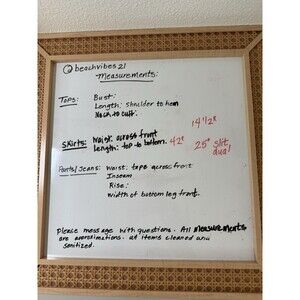 beachvibes21
Measurements:
Tops: Bust:
Length: Shoulder to hem
Neck to cuff.
14 1/2"
Skirts: Waist: across front 42"
Length: top to bottom. 25" slit
Pants/Jeans: Waist: tape across front
Inseam
Rise:
Width of bottom leg front.
Please message with questions. All measurements
are approximations. all items cleaned and
sanitized.